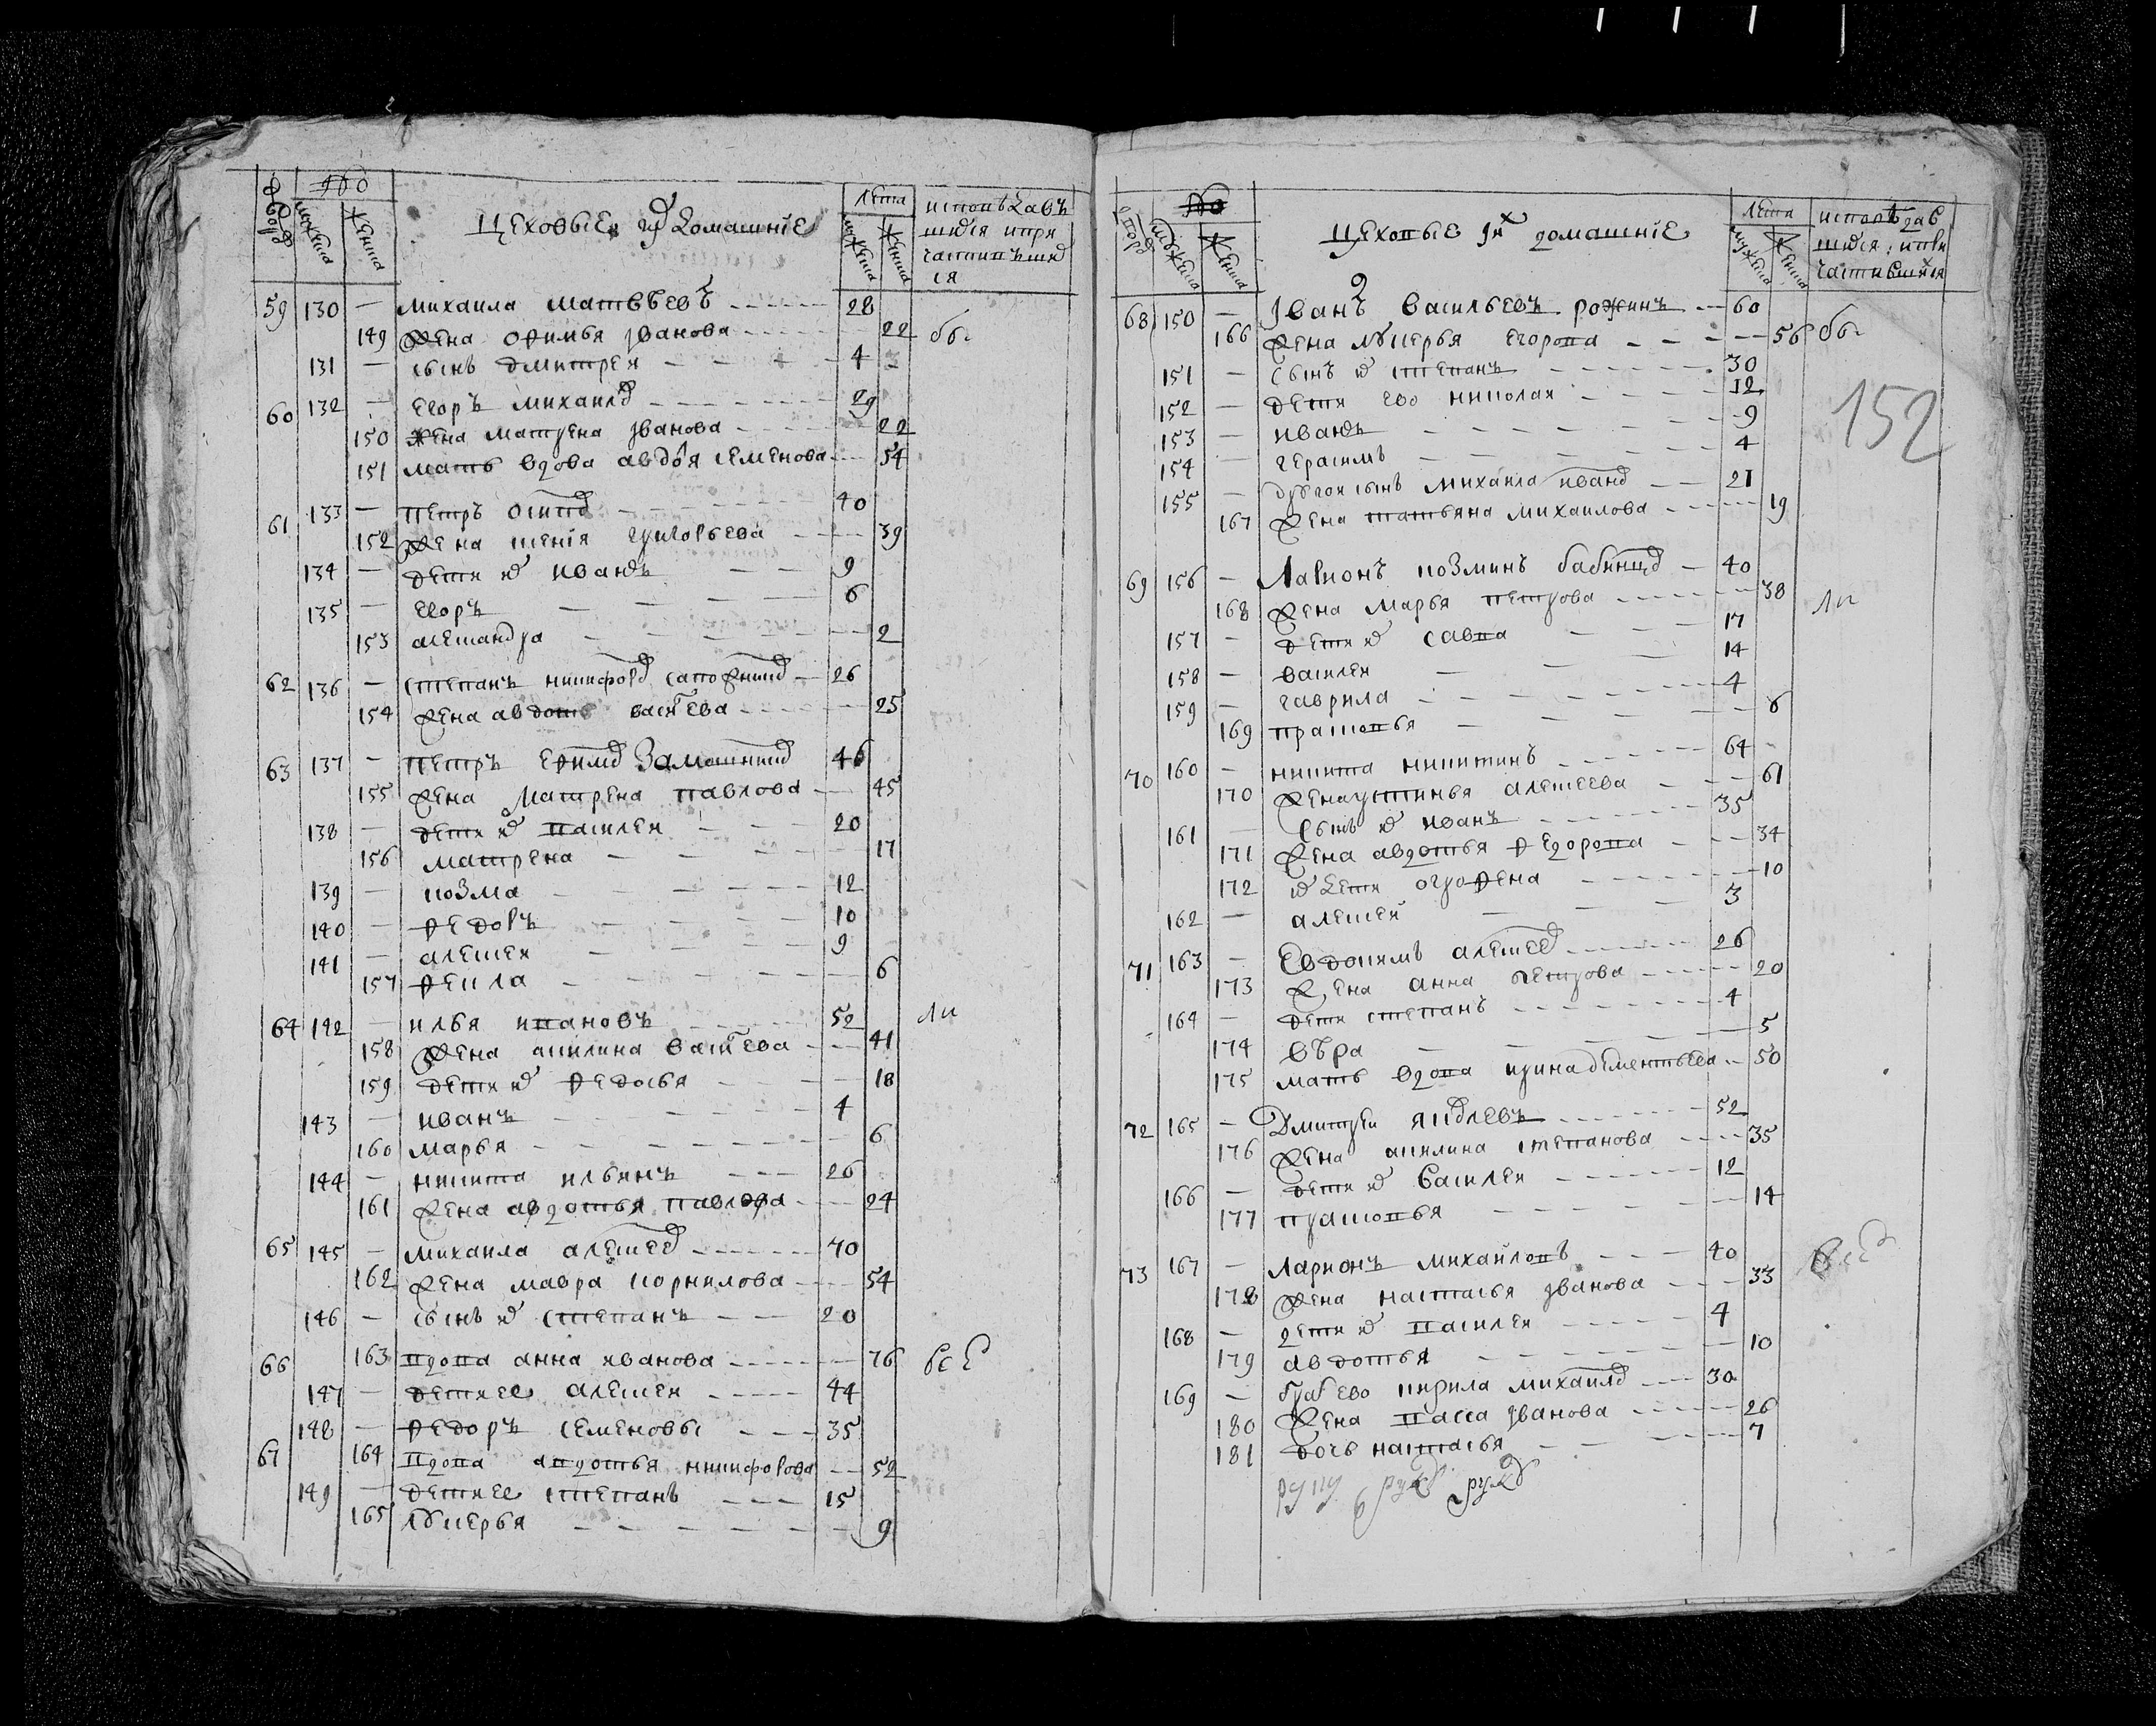 Цеховые и домашние
лета
исповѣдавъ
шихся и при
частивших
ся
59 130 — михаила матвѣевъ 28
149 жена офимья іванова 22
131 — сынъ дмитреи 4
60 132 — егоръ михаило 29
150 жена матрена іванова 22
151 мать вдова авдоя семенова 54
61 133 — петръ осипо 40
152 жена ксенія григорьева 39
134 — дети ихъ иванъ 9
135 — егоръ 6
153 александра 2
62 136 — степанъ никифоро сапожнико 26
154 жена авдоть васіева 25
63 137 — петръ ефимо Замошнико 46
155 жена матрена павлова 45
138 — дети ихъ василеи 20
156 матрена 17
139 — козма 12
140 — федоръ 10
141 — алексеи 9
157 фекла 6
64 142 — илья ивановъ 52
158 жена акилина васіева 41
159 дети ихъ федосья 18
143 — иванъ 4
160 марья 6
144 — никита ильинъ 26
161 жена авдотья павлова 24
65 145 — михаила алексее 70
162 жена мавра корнилова 54
146 — сынъ ихъ степанъ 20
66 163 вдова анна иванова 76
147 — дети ее алексеи 44
148 — федоръ семеновы 35
67 164 вдова авдотья никифорова 52
149 — дети ее степанъ 15
165 лукерья 9
Цеховые и их домашние
лета
исповѣдав
шихся и при
частившихся
68 150 — Іванъ васильевъ рожинъ 60
166 жена лукерья егорова 56
151 — сынъ ихъ степанъ 30
152 — дети ево николаи 12
153 — иванъ 9
154 — герасимъ 4
155 — другои сынъ михаила ивано 21
167 жена татьяна михаилова 19
152
69 156 — Ларионъ козминъ бабинцо 40
168 жена марья петрова 38
157 — дети ихъ савва 17
158 — василеи 14
159 — гаврила 4
169 прасковья 6
70 160 — никита никитинъ 64
170 жена устинья алексеева 61
161 — сынъ ихъ иванъ 35
171 жена авдотья федорова 34
172 ихъ дети огрофена 10
162 — алексеи 3
71 163 — Евдокимъ алексее 26
173 жена анна петрова 20
164 — дети степанъ 4
174 вѣра 5
175 мать вдова ирина дементьева 50
72 165 — Дмитреи яковлевъ 52
176 жена акилина степанова 35
166 — дети ихъ василеи 12
177 прасковья 14
73 167 — ларионъ михаиловъ 40
178 жена настасья іванова 33
168 — дети ихъ василеи 4
179 авдотья 10
169 — братъ ево кирила михаило 30
180 жена васса іванова 26
181 дочь настасья 7